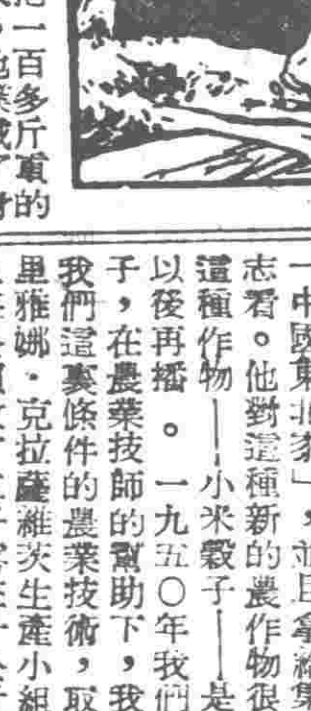 一百多斤重的
一中國東北黍」，並且拿給集
志看。他對這種新的農作物很
這種作物——小米穀子——是
以後再播。一九五〇年我們
子，在農業技師的幫助下，我
我們這裏條件的農業技術，取
里雅娜·克拉薩維茨生產小組